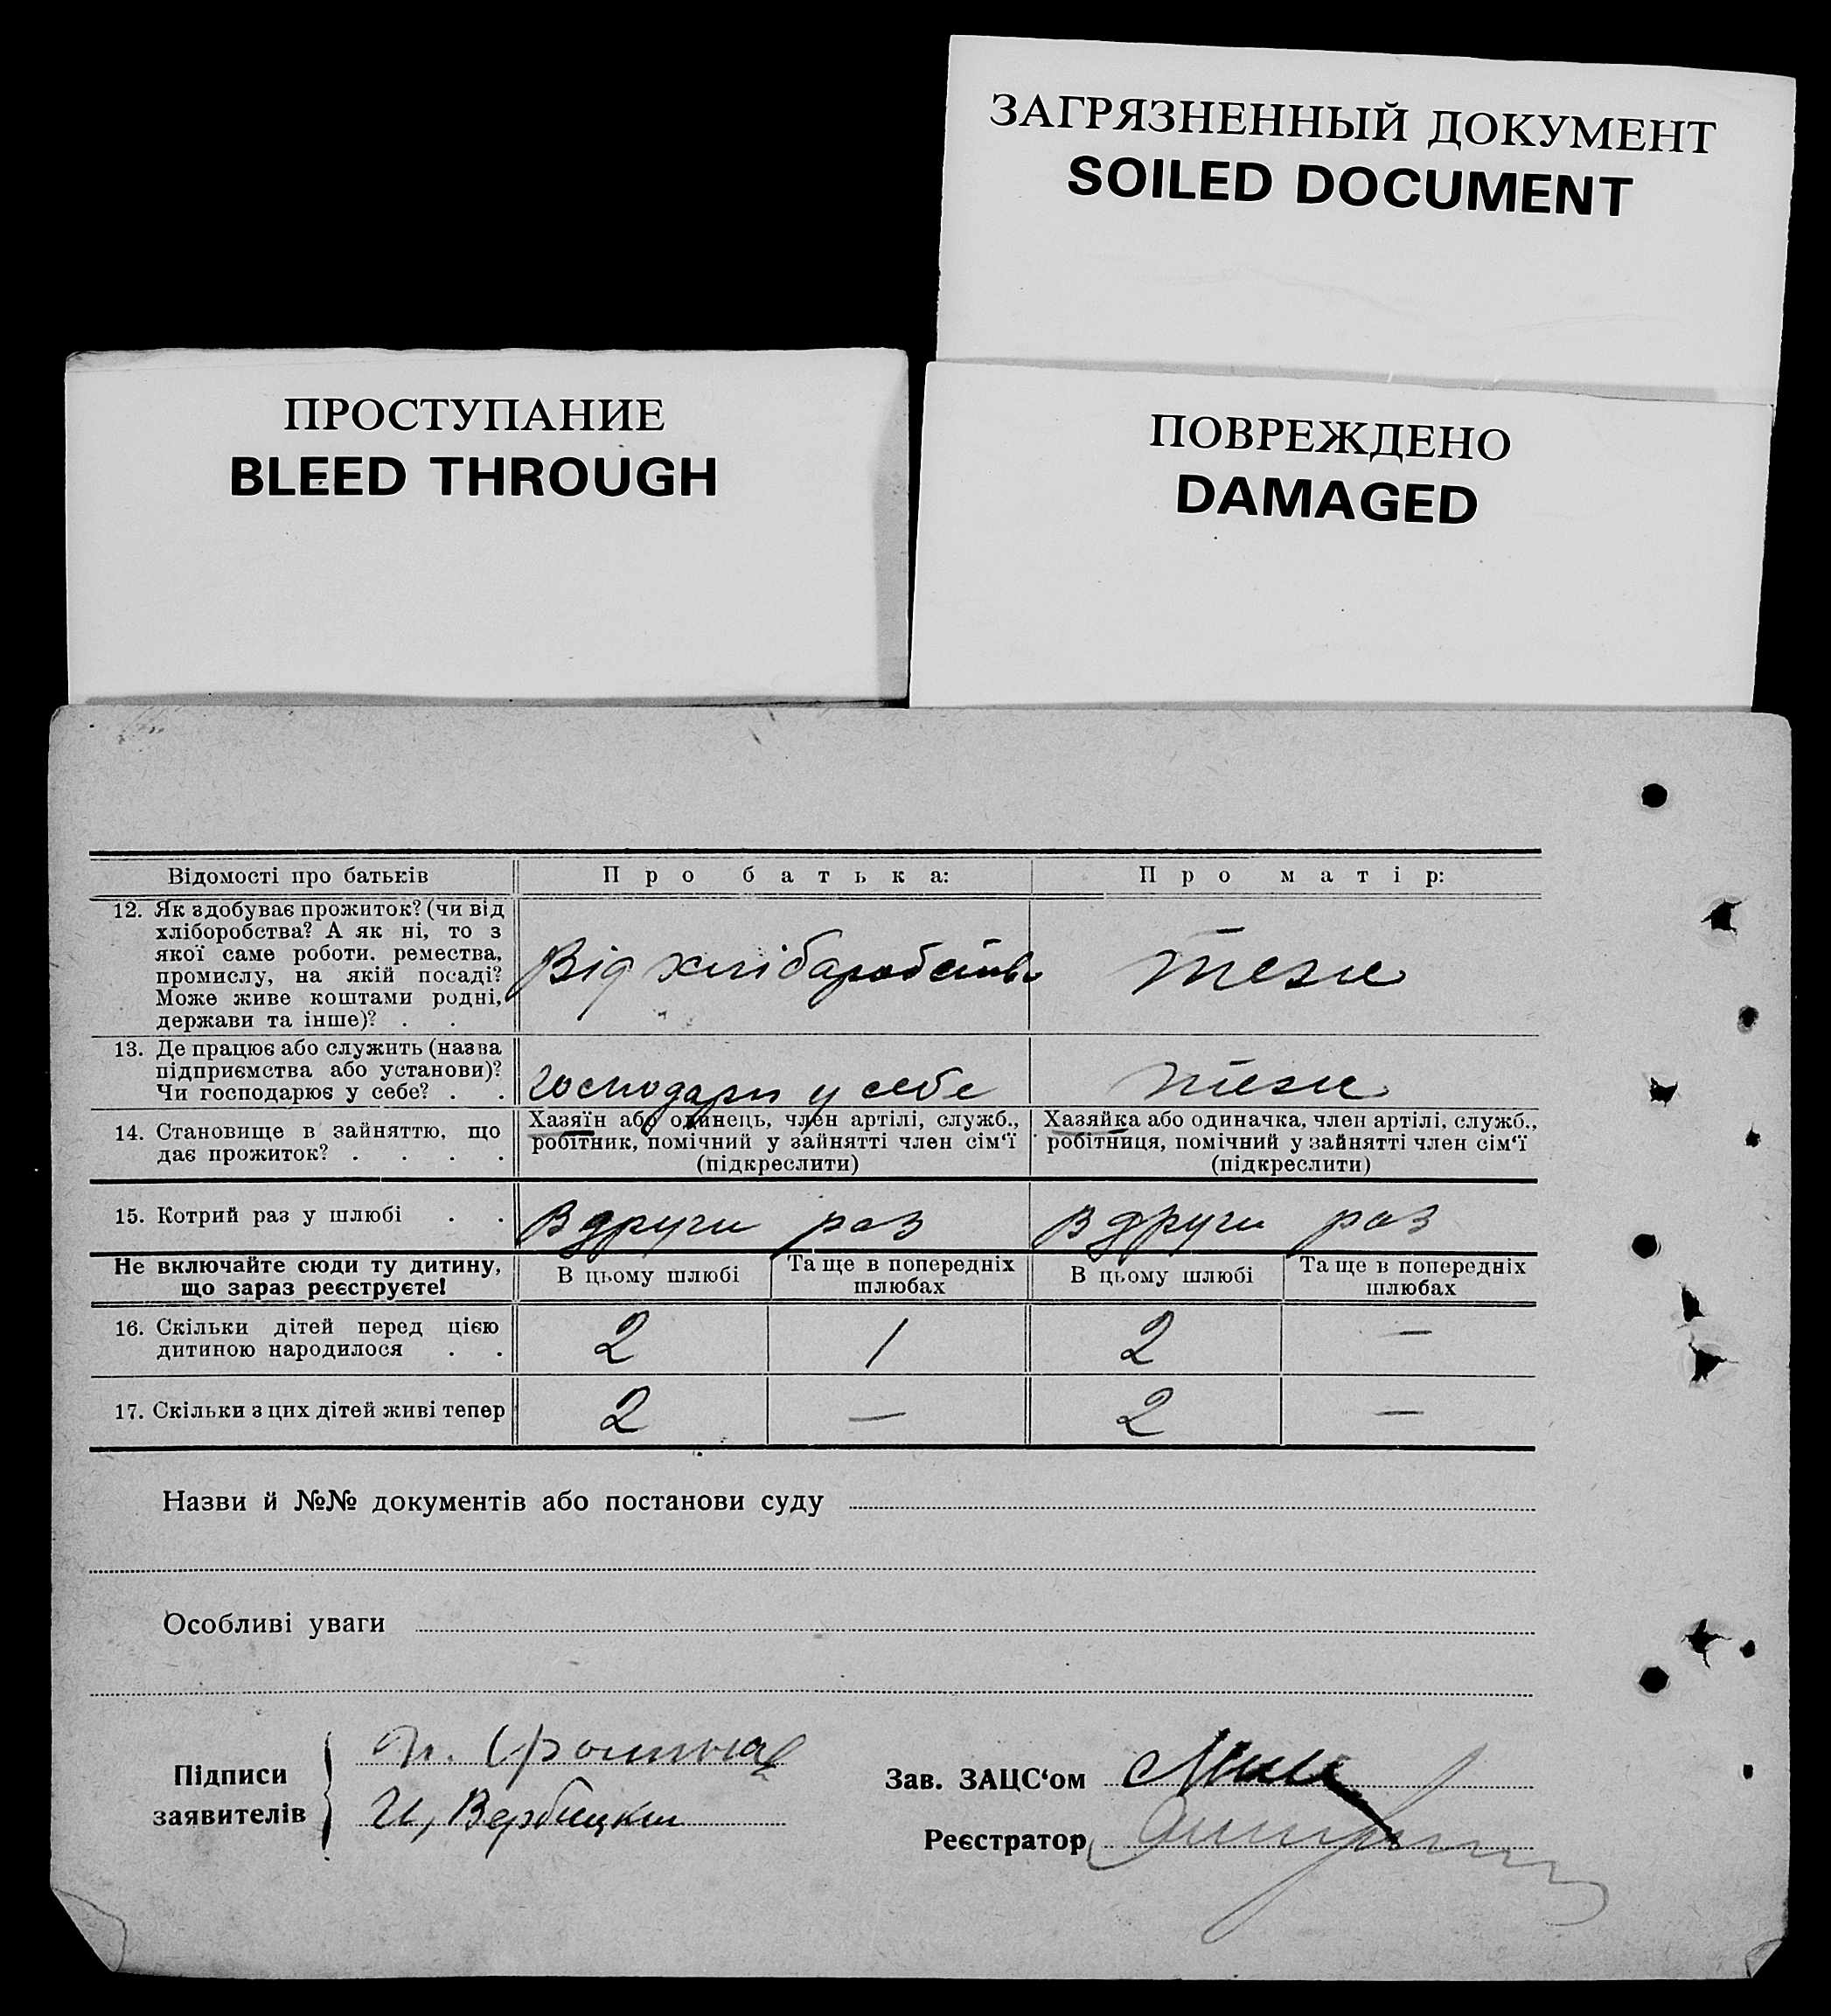 ЗАГРЯЗНЕННЫЙ ДОКУМЕНТ
SOILED DOCUMENT
ПРОСТУПАНИЕ
BLEED THROUGH
ПОВРЕЖДЕНО
DAMAGED
Відомості про батьків Про батька: Про матір:
12. Як здобуває прожиток? (чи від
хліборобства? А як ні, то з
якої саме роботи, ремества,
промислу, на якій посаді?
Може живе коштами родні,
держави та інше)? . .
Від хлібаробства теж
13. Де працює або служить (назва
підприємства або установи)?
Чи господарює у себе? . .
господарж у себе теж
14. Становище в зайняттю, що
дає прожиток? . . . .
Хазяїн або одинець, член артілі, служб.,
робітник, помічний у зайнятті член сім‘ї
(підкреслити)
Хазяйка або одиначка, член артілі, служб.,
робітниця, помічний у зайнятті член сім‘ї
(підкреслити)
15. Котрий раз у шлюбі . . Вдруги раз Вдруги раз
Не включайте сюди ту дитину,
що зараз реєструєте!
В цьому шлюбі
Та ще в попередніх
шлюбах
В цьому шлюбі
Та ще в попередніх
шлюбах
16. Скільки дітей перед цією
дитиною народилося . .
2 1 2 —
17. Скільки з цих дітей живі тепер 2 — 2 —
Назви й №№ документів або постанови суду
Особливі уваги
Підписи
заявителів
И, Вербицки
Зав. ЗАЦС‘ом
Реєстратор